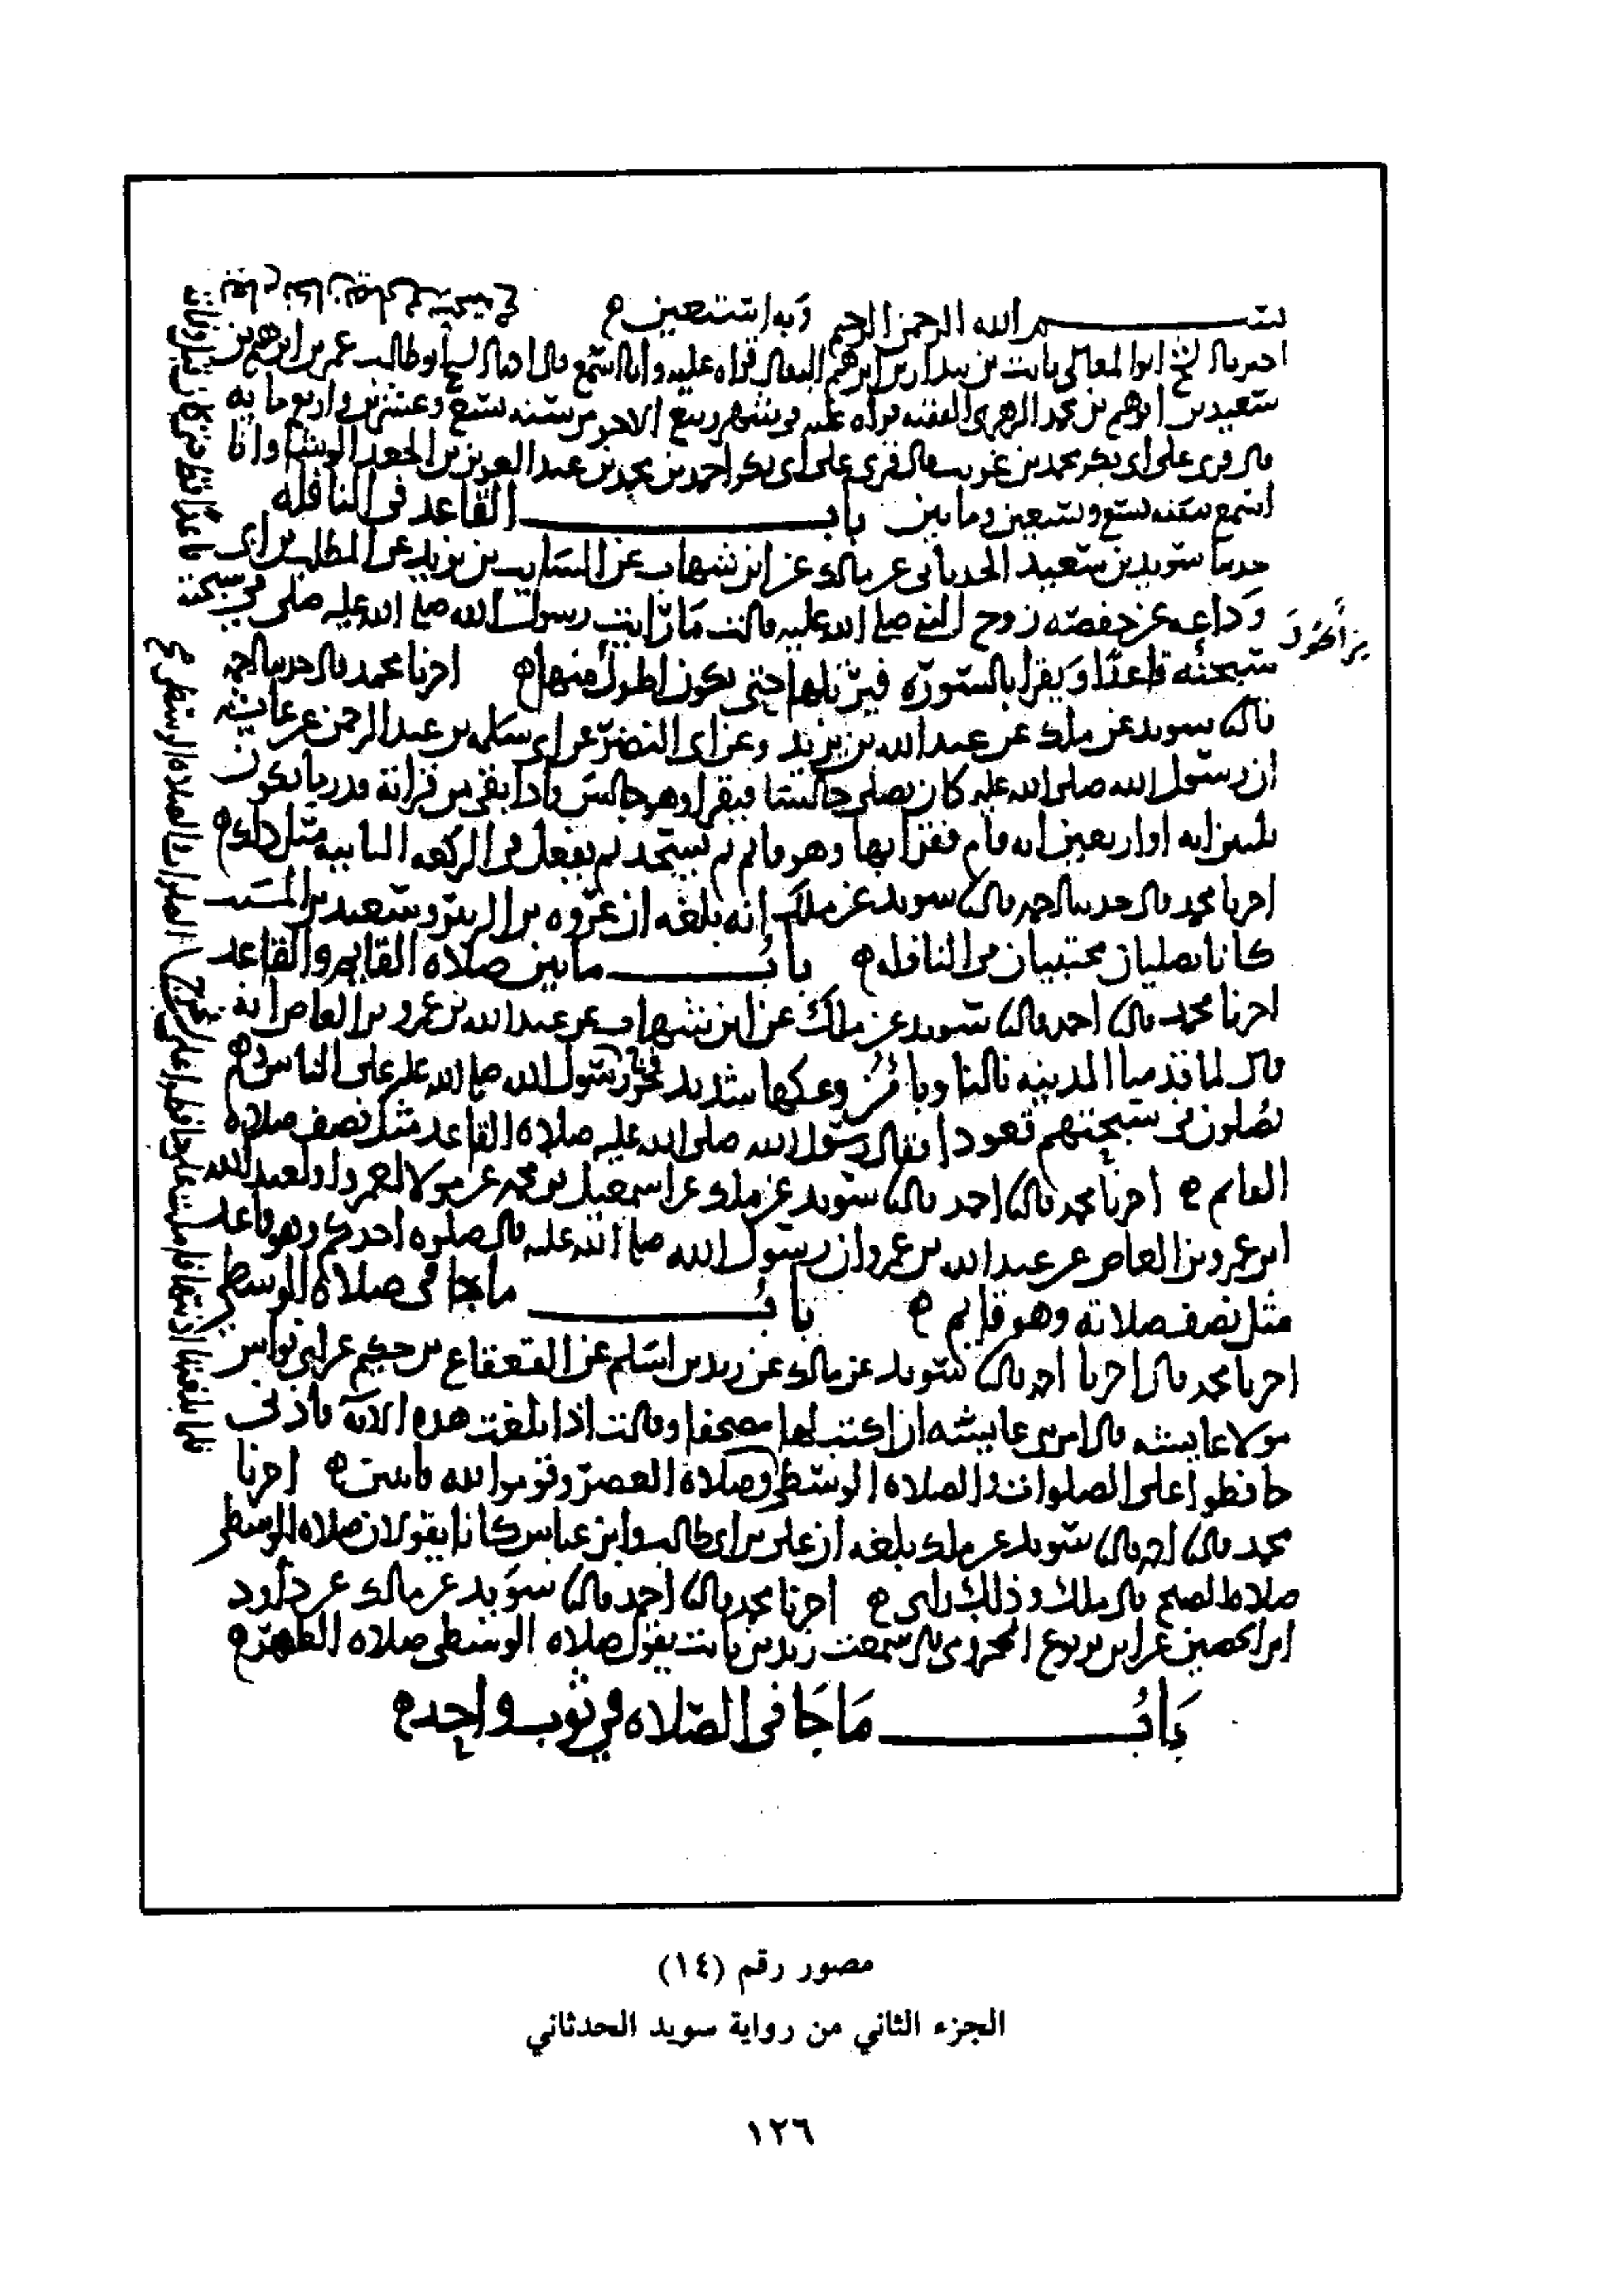 بسم الله الرحمن الرحيم وبه استعين
اخبرنا الشيخ ابو المعالي ثابت بن بندار بن ابرهيم البقال قراه عليه وانا اسمع قال اخبرنا ابو طالب عمر بن ابرهيم بن
سعيد بن ابرهيم بن محمد الزهري الفقيه قراه عليه في شهر ربيع الاخر من سنه تسع وعشرين واربع مايه
قال قرى على ابي بكر محمد بن غريب قال قرى على ابي بكر احمد بن محمد بن عبد العزيز بن الجعد الوشا وانا
اسمع سنه تسع وتسعين ومايتين باب القاعد في النافله
حدثنا سويد بن سعيد الحدثاني عن مالك عن ابن شهاب عن السايب بن يزيد عن المطلب بن ابي
وداعه عن حفصه زوج النبي صلى الله عليه قالت ما رايت رسول الله صلى الله عليه صلى في سبحته
سبحته قاعدا ويقرا بالسورة فيرتلها حتى يكون اطول منها اخبرنا محمد قال حدثنا احمد
قال سويد عن ملك عن عبد الله بن يزيد وعن ابي النضر عن ابي سلمه بن عبد الرحمن عن عايشه
ان رسول الله صلى الله عليه كان يصلي جالسا فيقرا وهو جالس فاذا بقي من قراته قدر ما يكون
ثلثين ايه او اربعين ايه قام فقرا بها وهو قايم ثم يسجد ثم يفعل في الركعه الثانيه مثل ذلك
اخبرنا محمد قال حدثنا احمد قال سويد عن ملك انه بلغه ان عروه بن الزبير وسعيد بن المسيب
كانا يصليان محتبيان في النافله باب ما بين صلاه القايم والقاعد
اخبرنا محمد قال احمد قال سويد عن ملك عن ابن شهاب عن عبد الله بن عمرو بن العاص انه
قال لما قدمنا المدينه نالنا وبا من وعكها شديد فخرج رسول الله صلى الله عليه على الناس وهم
يصلون في سبحتهم قعودا فقال رسول الله صلى الله عليه صلاه القاعد مثل نصف صلاه
القايم اخبرنا محمد قال احمد قال سويد عن ملك عن اسمعيل بن محمد عن مولا لعمرو او لعبد الله
ابن عمرو بن العاص عن عبد الله بن عمرو ان رسول الله صلى الله عليه قال صلوه احدكم وهو قاعد
مثل نصف صلاته وهو قايم باب ما جا في صلاه الوسطى
اخبرنا محمد قال اخبرنا احمد قال سويد عن مالك عن زيد بن اسلم عن القعقاع بن حكيم عن ابي يونس
مولا عايشه قال امرتني عايشه ان اكتب لها مصحفا وقالت اذا بلغت هذه الاية فاذني
حافظوا على الصلوات والصلاه الوسطى وصلاة العصر وقوموا لله قانتين اخبرنا
محمد قال احمد قال سويد عن ملك بلغه ان علي بن ابي طالب وابن عباس كانا يقولان صلاه الوسطى
صلاه الصبح قال ملك وذلك رايي اخبرنا محمد قال احمد قال سويد عن مالك عن داود
ابن الحصين عن ابن يربوع المخزومي قال سمعت زيد بن ثابت يقول صلاه الوسطى صلاه الظهر
باب ما جا في الصلاه في ثوب واحد
مصور رقم (١٤)
الجزء الثاني من رواية سويد الحدثاني
١٢٦